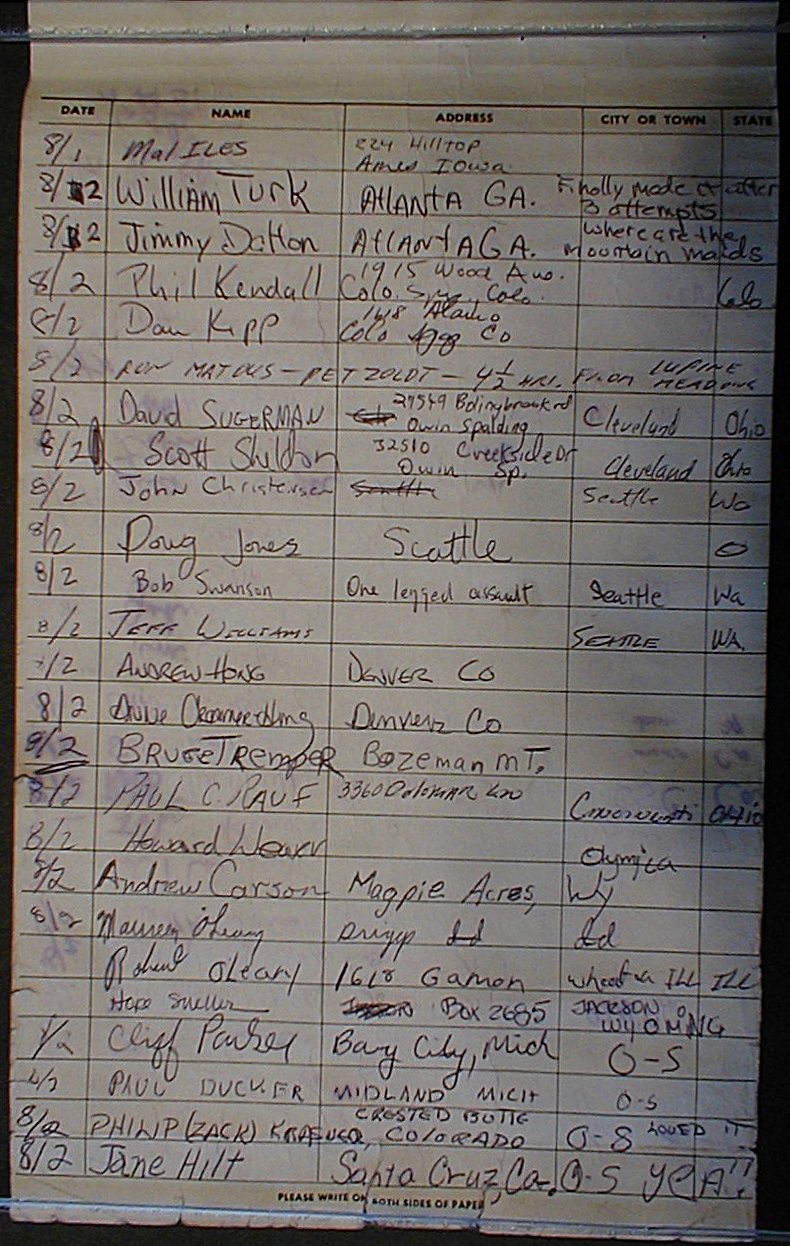 DATE NAME ADDRESS CITY OR TOWN STATE
8/1 Mal ILES 224 Hilltop
Ames Iowa
8/2 William Turk Atlanta GA. Finally made it after
3 attempts
8/2 Jimmy Dalton Atlanta GA. where are the
mountain maids
8/2 Phil Kendall 1915 Wood Ave.
Colo. Spgs, Colo. Colo
8/2 Dan Kipp 1618 Alamo
Colo Spgs Co
8/2 RON MATOUS - PETZOLDT - 4 1/2 HRS. FROM LUPINE
MEADOWS
8/2 David SUGERMAN 27549 Bolingbrook rd
Owin Spalding Cleveland Ohio
8/2 Scott Sheldon 32510 Creekside Dr
Owin Sp. Cleveland Ohio
8/2 John Christensen Seattle Seattle Wa
8/2 Doug Jones Seattle O
8/2 Bob Swanson One legged assault Seattle Wa
8/2 JEFF WILLIAMS SEATTLE WA
8/2 ANDREW HONG DENVER CO
8/2 Denver Co
8/2 BRUCE TREMPER BOZEMAN MT.
8/2 PAUL C. RAUF 3360 Cincinnati OHIO
8/2 Howard Weaver Olympica
8/2 Andrew Carson Magpie Acres, Wy
8/2 Maureen O'Leary Driggs Id Id
Robert O'Leary 1618 Gamon Wheaton ILL ILL
Hope Sneller Box 2685 JACKSON
WYOMING
8/2 Cliff Parker Bay City, Mich O-S
8/2 PAUL DUCKER MIDLAND MICH O-S
8/2 PHILIP (ZACK) CRESTED BUTTE
COLORADO O-S LOVED IT
8/2 Jane Hilt Santa Cruz, Ca. O-S YEA!!
PLEASE WRITE ON BOTH SIDES OF PAPER